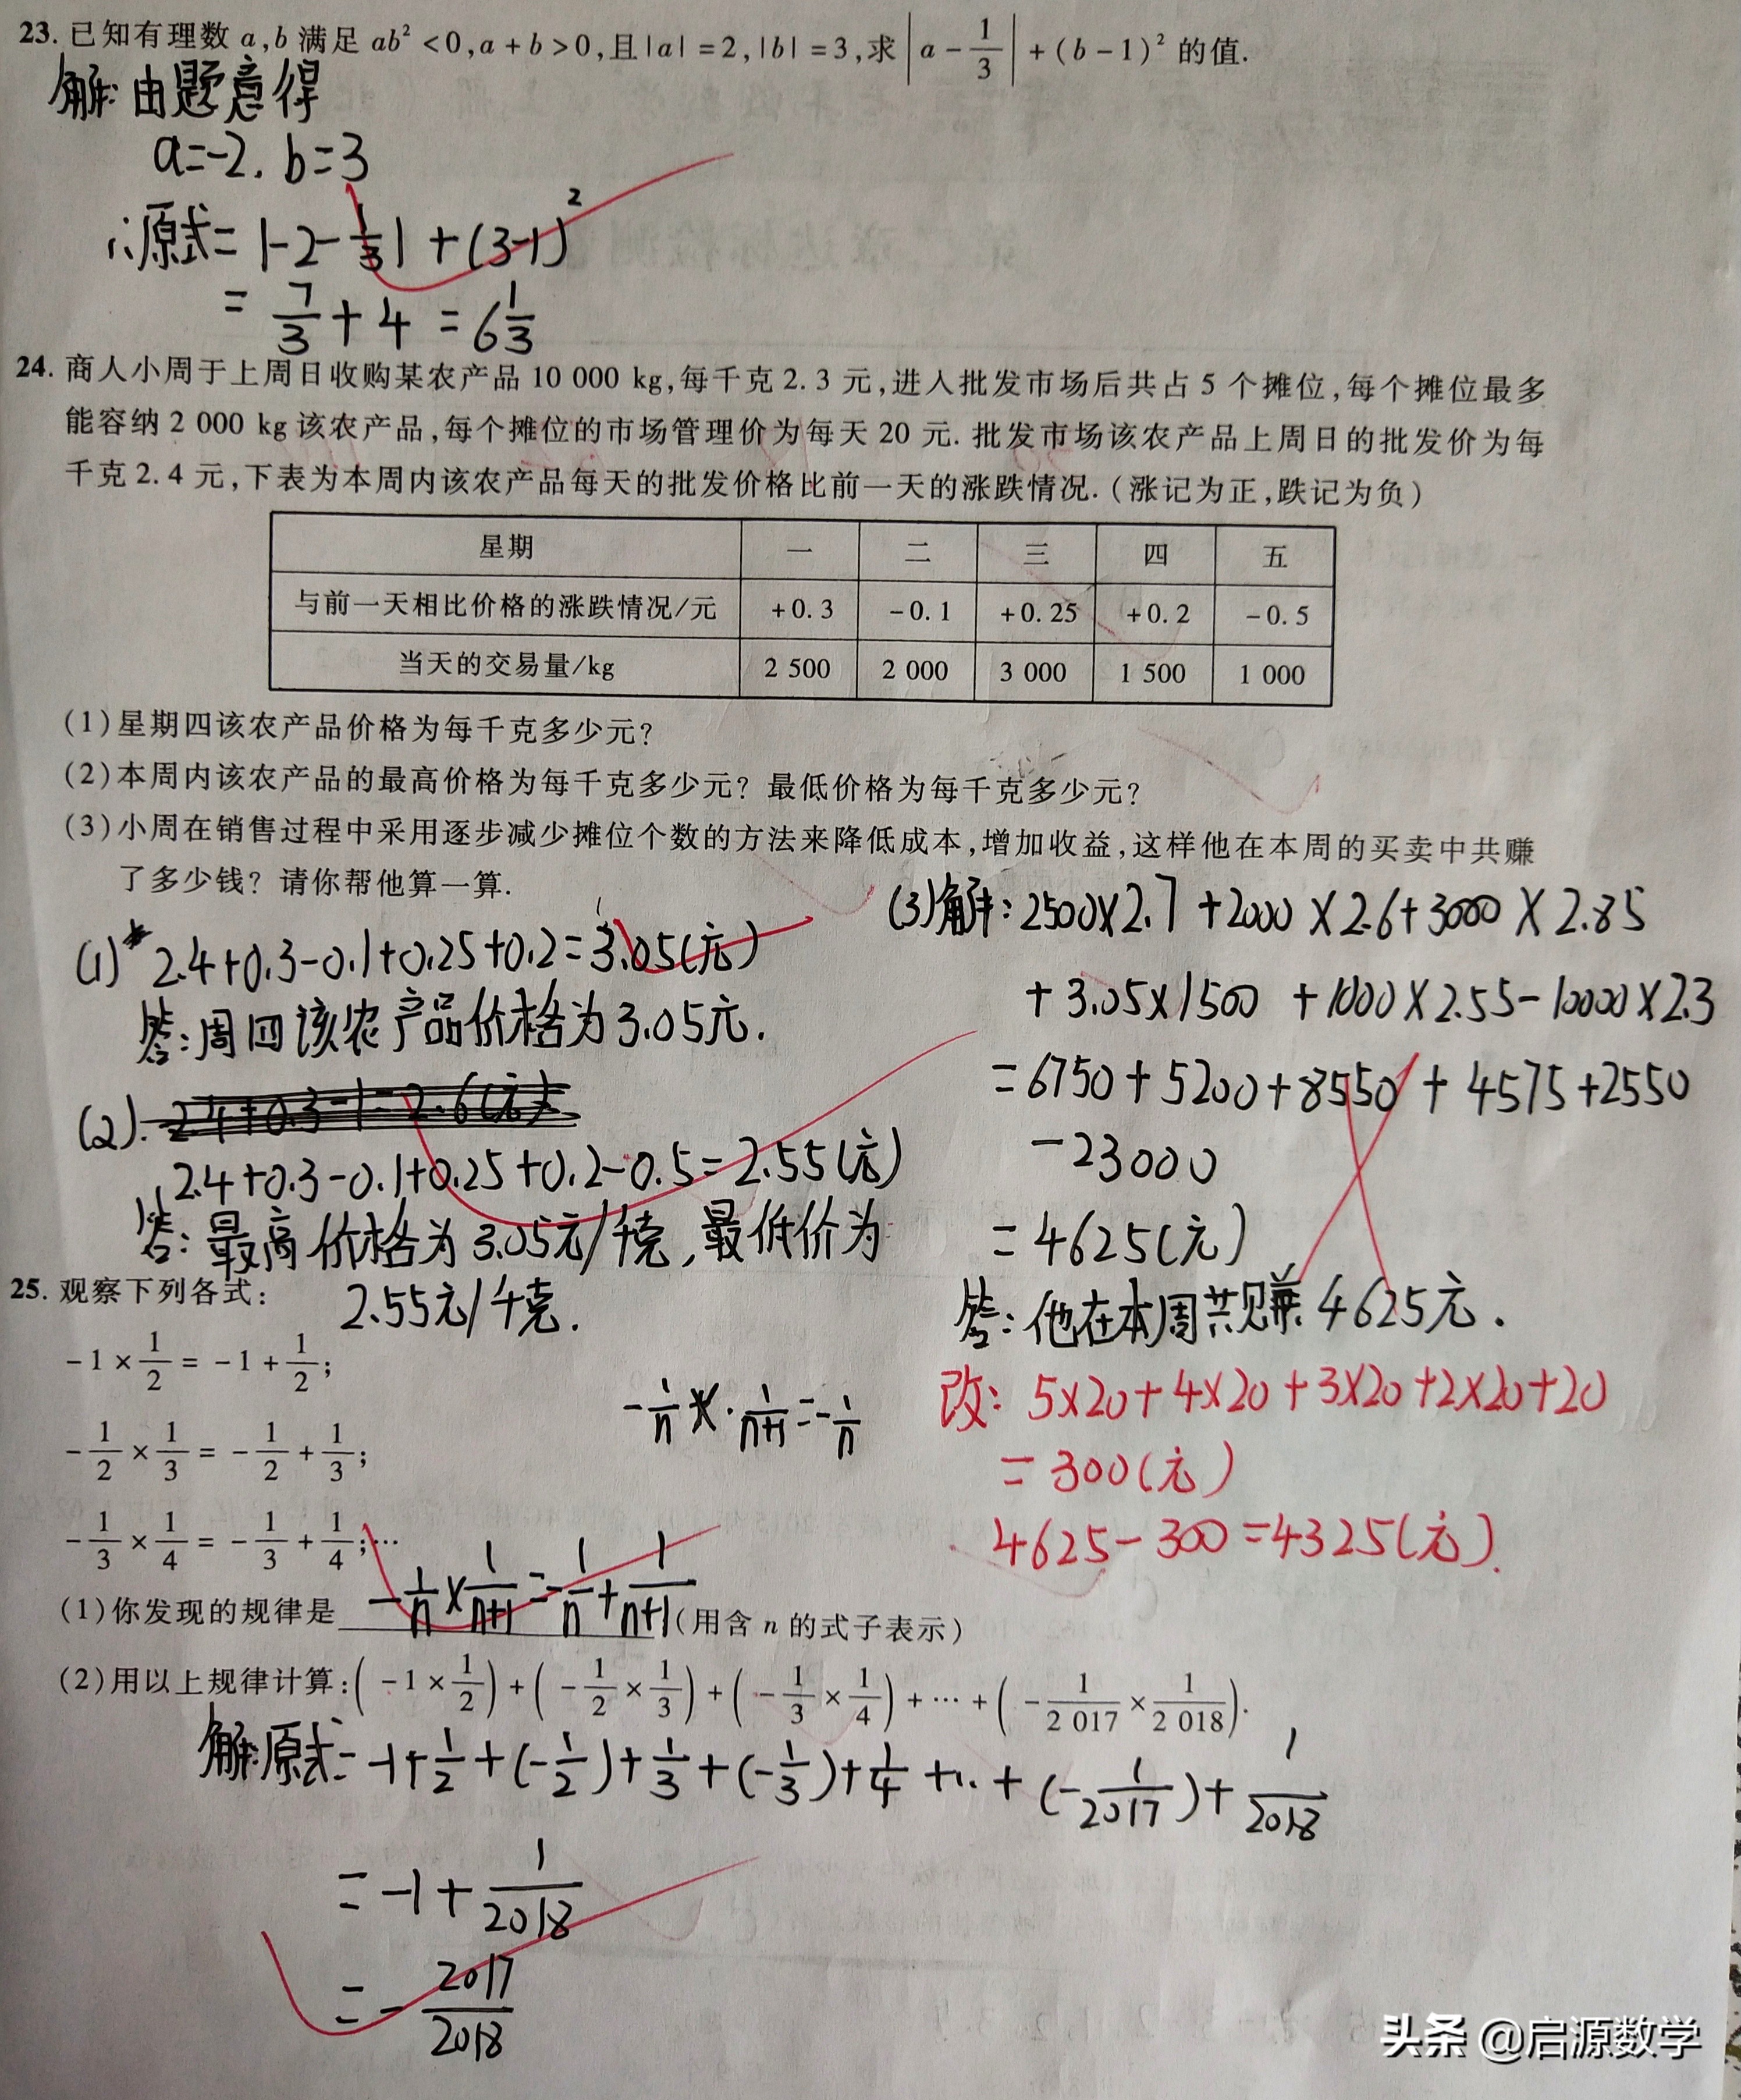 23. 已知有理数 a,b 满足 ab²<0,a+b>0,且|a|=2,|b|=3,求|a-1/3|+(b-1)²的值.
解:由题意得
a=-2. b=3
∴原式=|-2-1/3|+(3-1)²
=7/3+4=6 1/3
24. 商人小周于上周日收购某农产品 10 000 kg,每千克 2.3 元,进入批发市场后共占 5 个摊位,每个摊位最多
能容纳 2 000 kg 该农产品,每个摊位的市场管理价为每天 20 元. 批发市场该农产品上周日的批发价为每
千克 2.4 元,下表为本周内该农产品每天的批发价格比前一天的涨跌情况.(涨记为正,跌记为负)
星期 一 二 三 四 五
与前一天相比价格的涨跌情况/元 +0.3 -0.1 +0.25 +0.2 -0.5
当天的交易量/kg 2 500 2 000 3 000 1 500 1 000
(1)星期四该农产品价格为每千克多少元?
(2)本周内该农产品的最高价格为每千克多少元? 最低价格为每千克多少元?
(3)小周在销售过程中采用逐步减少摊位个数的方法来降低成本,增加收益,这样他在本周的买卖中共赚
了多少钱? 请你帮他算一算.
(1) 2.4+0.3-0.1+0.25+0.2=3.05(元)
答:周四该农产品价格为3.05元.
(2). 2.4+0.3-1=2.6(元)
2.4+0.3-0.1+0.25+0.2-0.5=2.55(元)
答:最高价格为3.05元/千克,最低价为
2.55元/千克.
(3)解:2500×2.7+2000×2.6+3000×2.85
+3.05×1500+1000×2.55-10000×2.3
=6750+5200+8550+4575+2550
-23000
=4625(元)
答:他在本周共赚4625元.
改: 5×20+4×20+3×20+2×20+20
=300(元)
4625-300=4325(元).
25. 观察下列各式:
-1×1/2=-1+1/2;
-1/2×1/3=-1/2+1/3;
-1/3×1/4=-1/3+1/4;…
-1/n·1/(n+1)=-1/n
(1)你发现的规律是 -1/n×1/(n+1)=-1/n+1/(n+1) (用含 n 的式子表示)
(2)用以上规律计算:(-1×1/2)+(-1/2×1/3)+(-1/3×1/4)+…+(-1/2 017×1/2 018).
解:原式=-1+1/2+(-1/2)+1/3+(-1/3)+1/4+…+(-1/2017)+1/2018
=-1+1/2018
=-2017/2018
头条 @启源数学